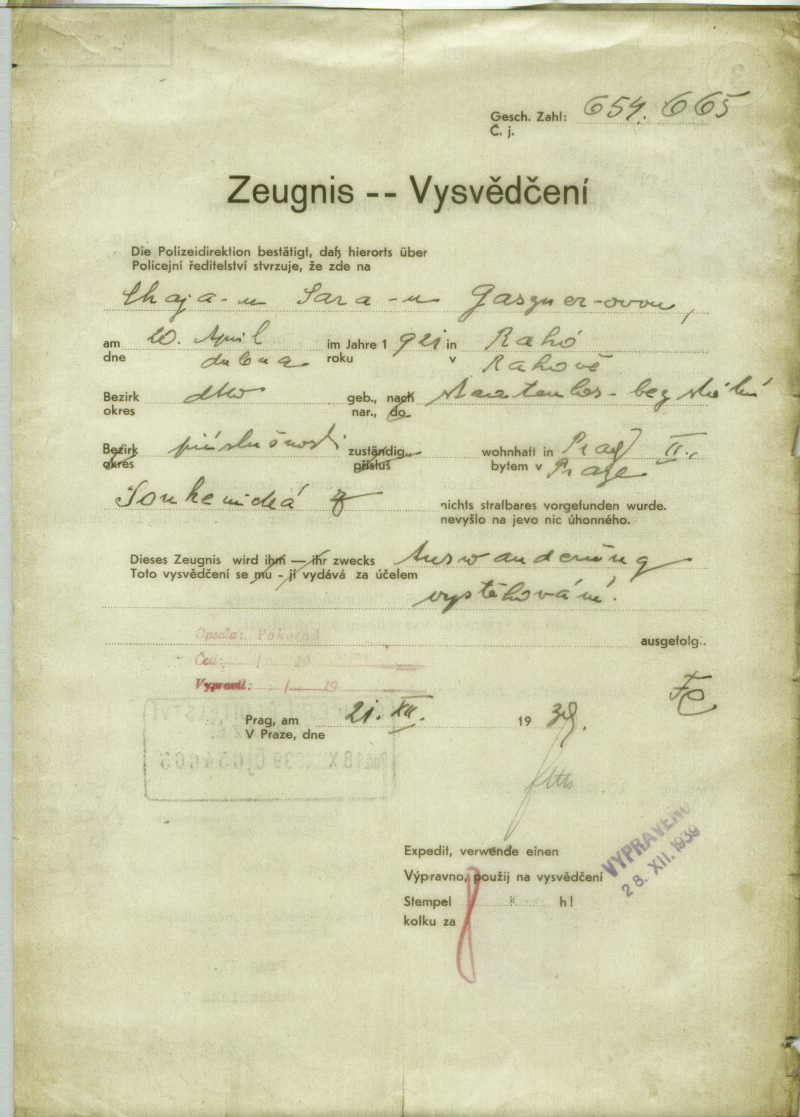 Gesch. Zahl: 654.665
Č. j.
Zeugnis -- Vysvědčení
Die Polizeidirektion bestätigt, daß hierorts über
Policejní ředitelství stvrzuje, že zde na
Chaja-u Sara-u Gaszner-ovou,
am 20. April im Jahre 1921 in Rahó
dne dubna roku v Rahově
Bezirk dtto geb., nach staatenlos - bez státní
okres nar., do
Bezirk příslušnosti zuständig., wohnhaft in Prag II.,
okres příslus bytem v Praze
Soukenická nichts strafbares vorgefunden wurde.
nevyšlo na jevo nic úhonného.
Dieses Zeugnis wird ihm — ihr zwecks Auswanderung
Toto vysvědčení se mu - jí vydává za účelem
vystěhování.
Opsala: Pokorná
ausgefolg..
Čtli: / 19
Vypravil: / 19
Prag, am 21. XII. 1939.
V Praze, dne
Expedit, verwende einen
Výpravno, použij na vysvědčení
VYPRAVENO
28. XII. 1939
Stempel K h!
kolku za